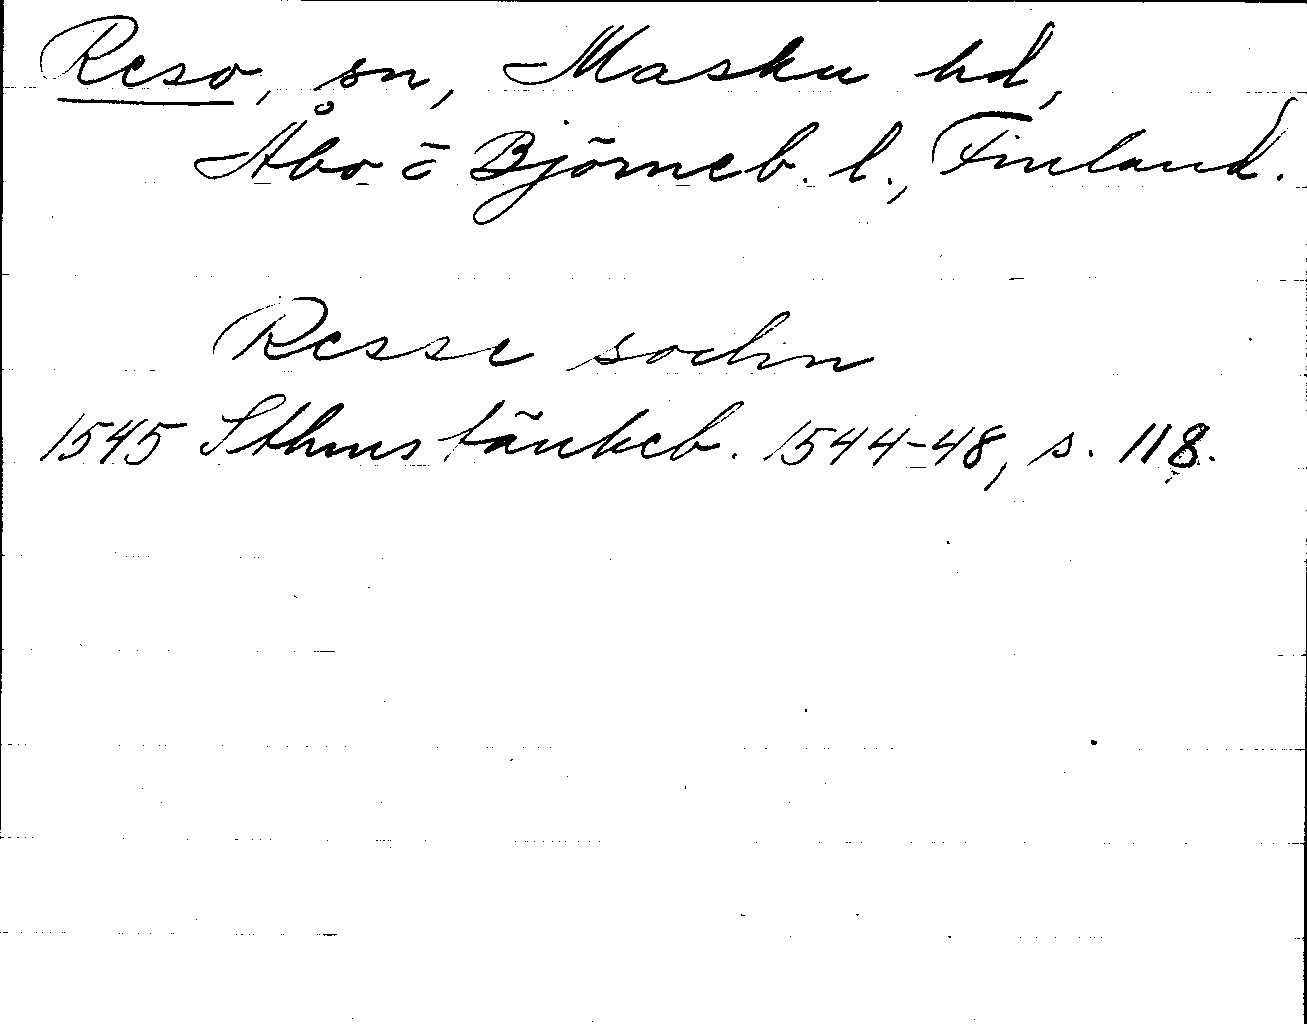 Reso, sn, Masku hd,
Åbo o Björneb. l., Finland.
Resse sochn
1545 Sthms tänkeb. 1544-48, s. 118.